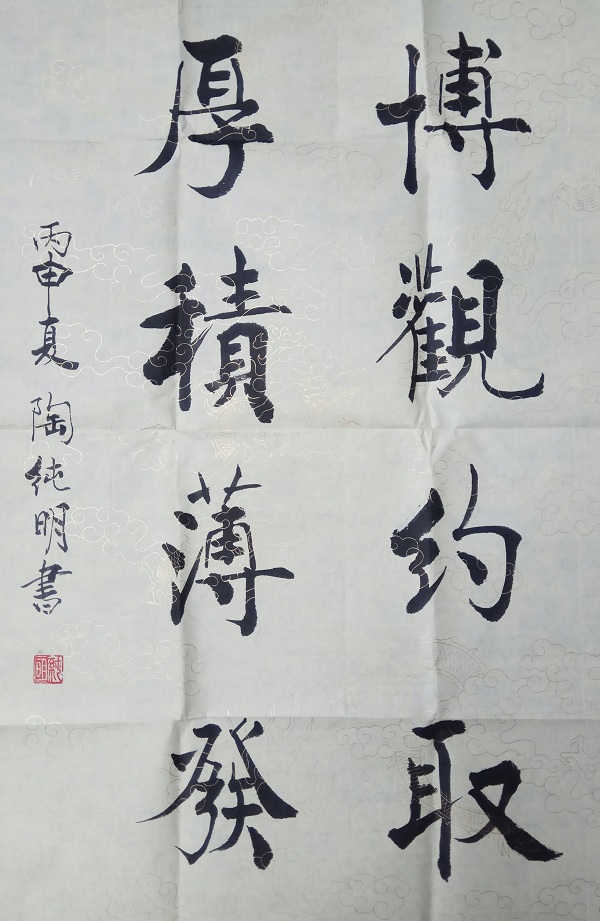 博觀约取
厚積薄發
丙申夏 陶纯明書
純明